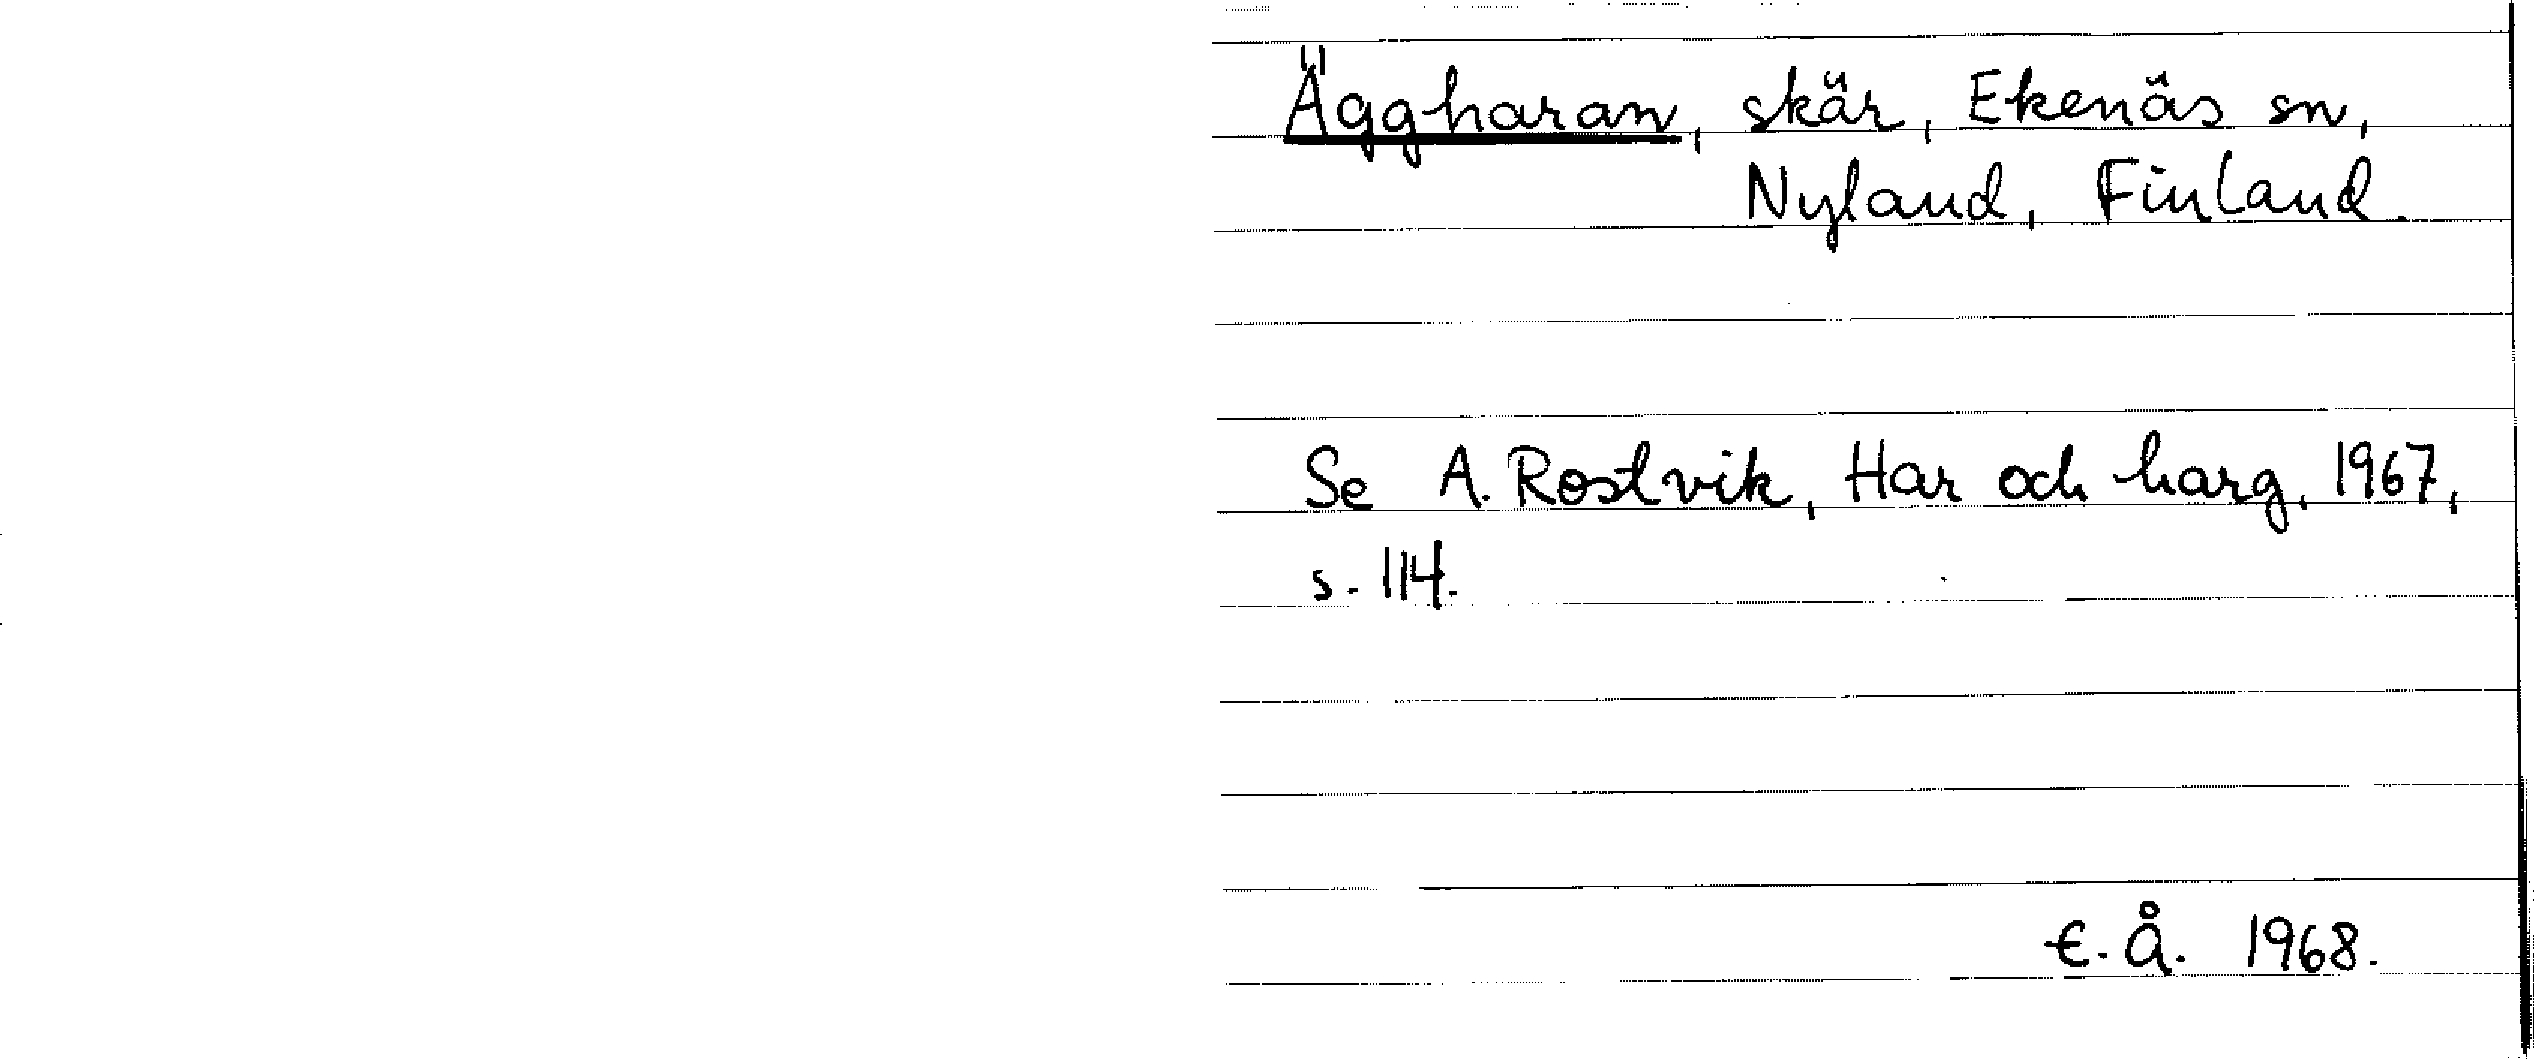 Äggharan, skär, Ekenäs sn,
Nyland, Finland.
Se A. Rostvik, Har och harg, 1967,
s. 114.
E.Å. 1968.